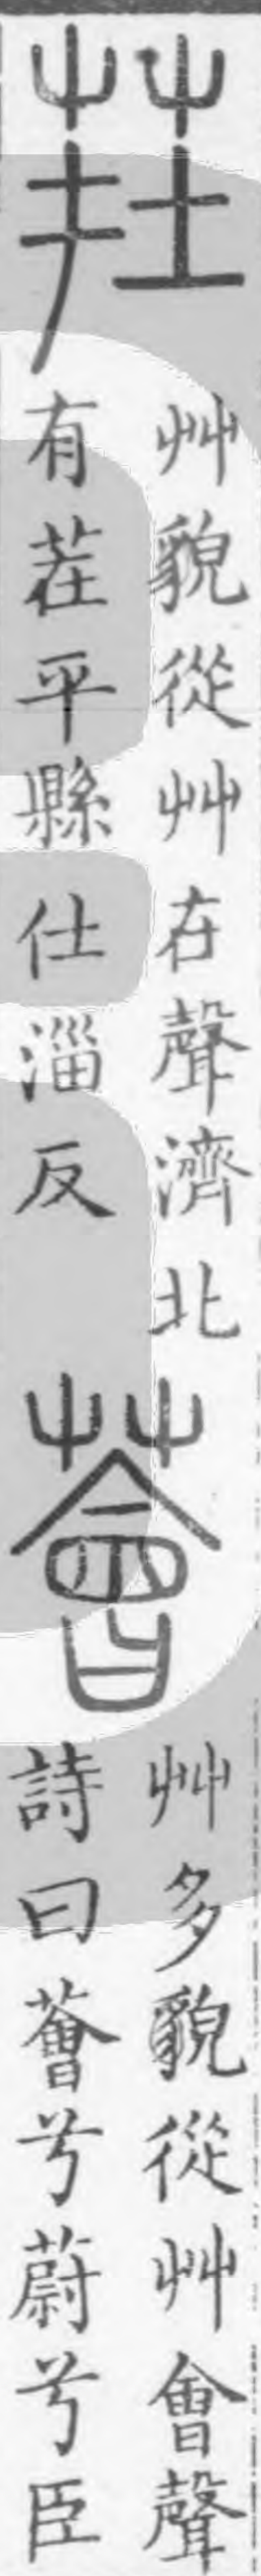 茬
艸貌從艸在聲濟北
有茬平縣仕淄反
薈
艸多貌從艸會聲
詩曰薈兮蔚兮臣